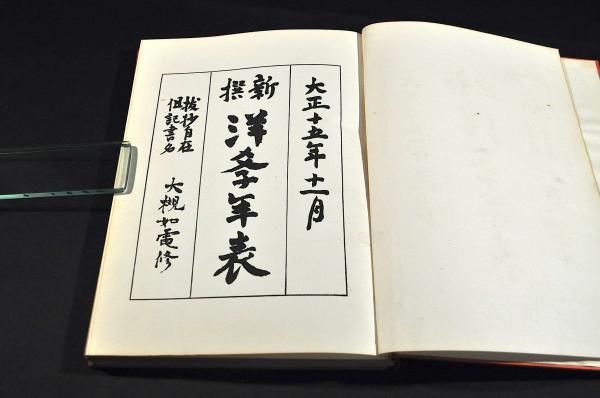 大正十五年十一月
新撰
洋斈年表
拔抄自在
但記書名
大槻如電修